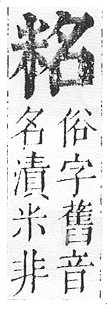 粭
俗字舊音
名漬米非